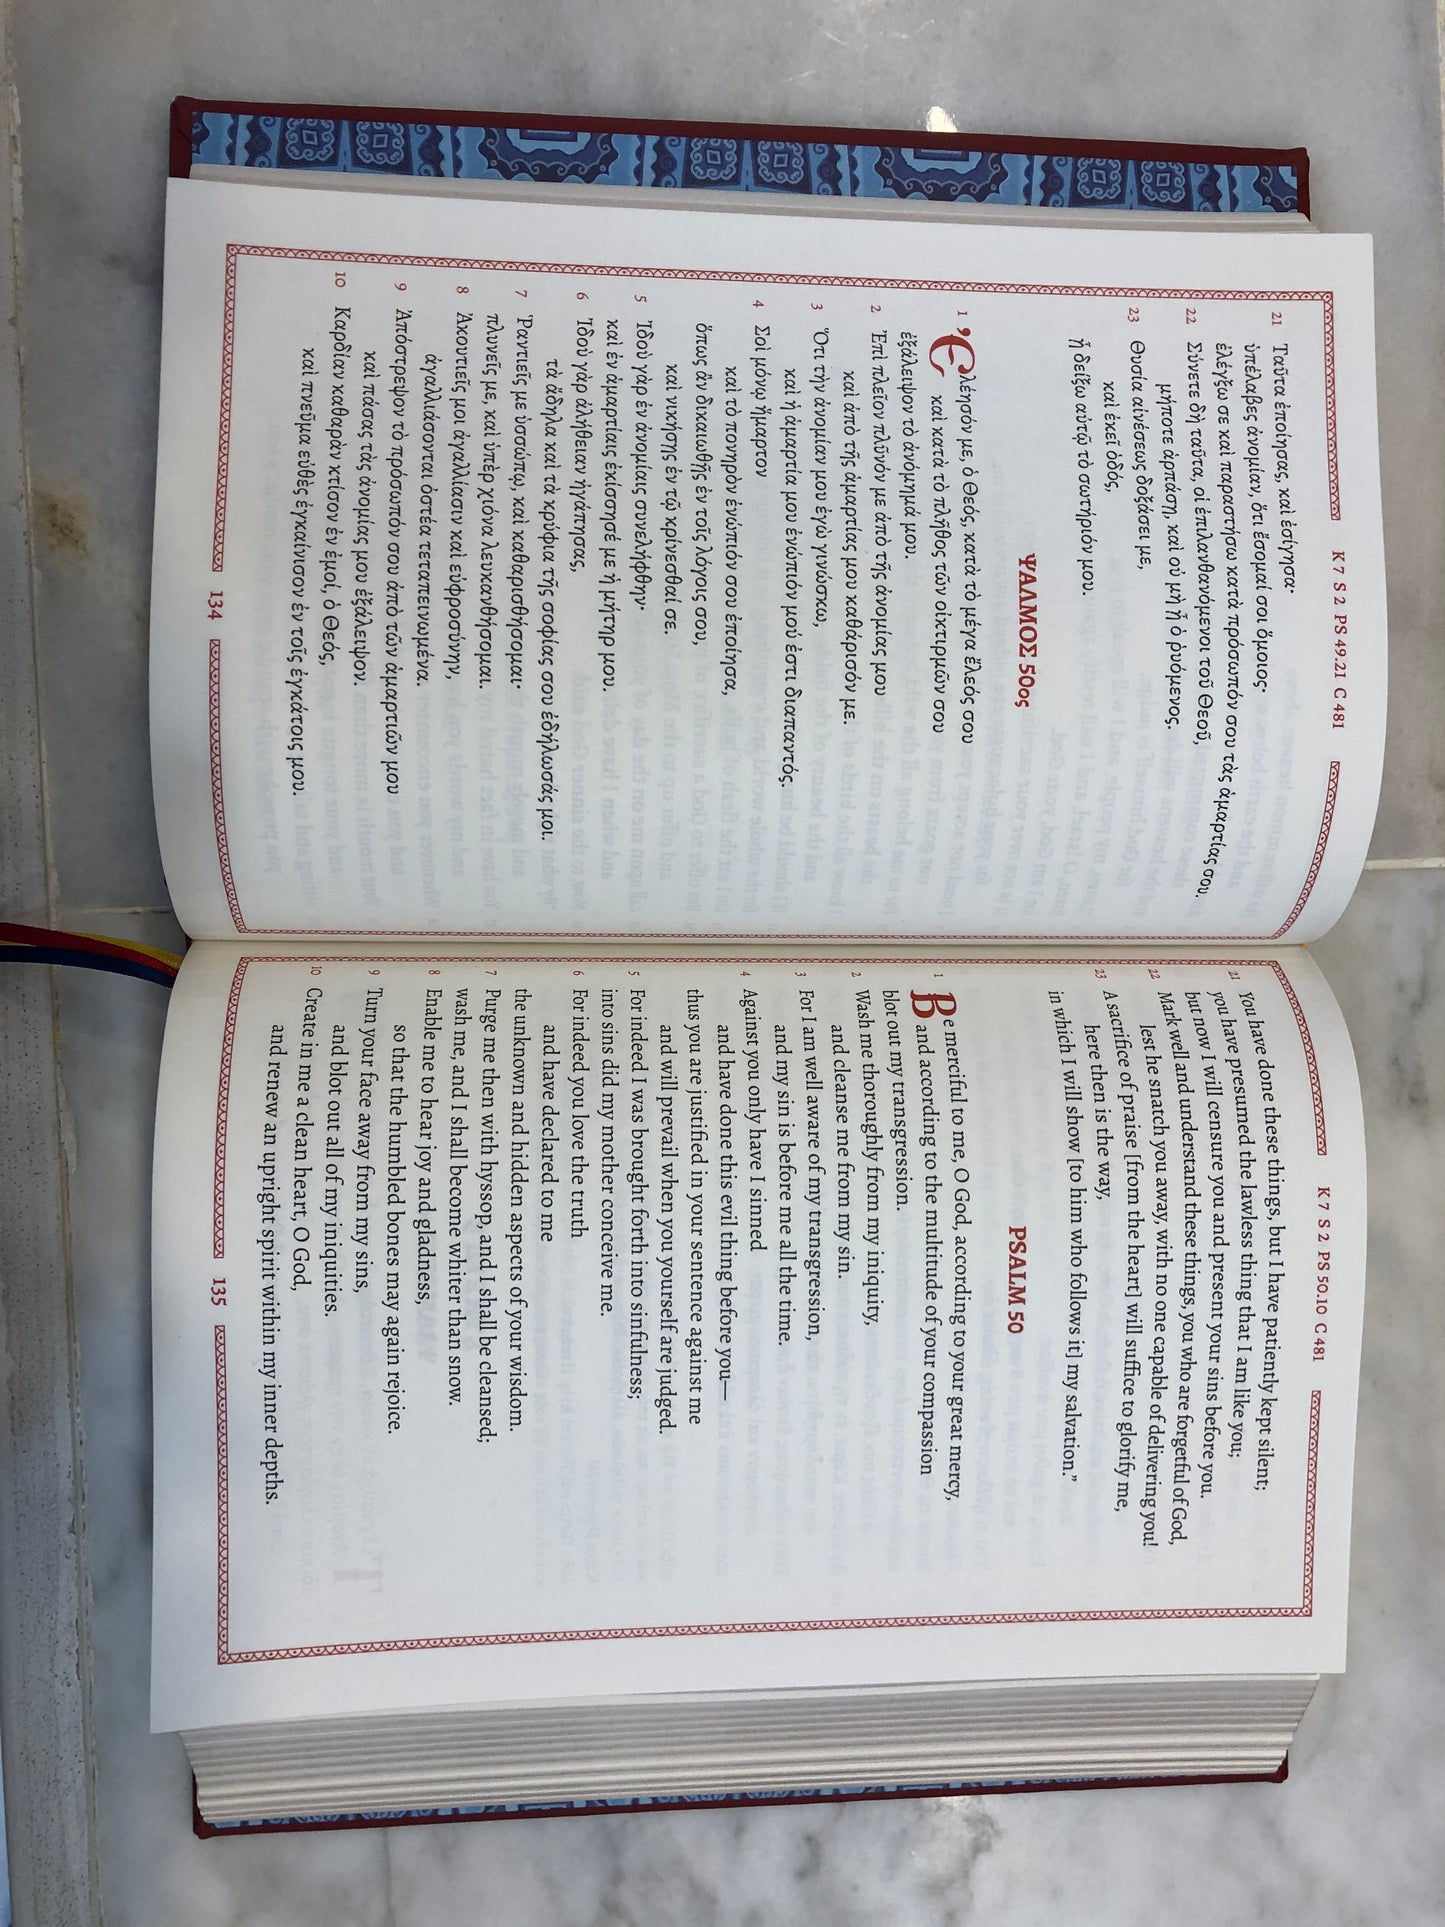 K 7 S 2 PS 49.21 C 481
21 Ταῦτα ἐποίησας, καὶ ἐσίγησα·
ὑπέλαβες ἀνομίαν, ὅτι ἔσομαί σοι ὅμοιος·
ἐλέγξω σε καὶ παραστήσω κατὰ πρόσωπόν σου τὰς ἁμαρτίας σου.
22 Σύνετε δὴ ταῦτα, οἱ ἐπιλανθανόμενοι τοῦ Θεοῦ,
μήποτε ἁρπάσῃ, καὶ οὐ μὴ ᾖ ὁ ῥυόμενος.
23 Θυσία αἰνέσεως δοξάσει με,
καὶ ἐκεῖ ὁδός,
ᾗ δείξω αὐτῷ τὸ σωτήριόν μου.
ΨΑΛΜΟΣ 50ος
1 Ἐλέησόν με, ὁ Θεός, κατὰ τὸ μέγα ἔλεός σου
καὶ κατὰ τὸ πλῆθος τῶν οἰκτιρμῶν σου
ἐξάλειψον τὸ ἀνόμημά μου.
2 Ἐπὶ πλεῖον πλῦνόν με ἀπὸ τῆς ἀνομίας μου
καὶ ἀπὸ τῆς ἁμαρτίας μου καθάρισόν με.
3 Ὅτι τὴν ἀνομίαν μου ἐγὼ γινώσκω,
καὶ ἡ ἁμαρτία μου ἐνώπιόν μού ἐστι διαπαντός.
4 Σοὶ μόνῳ ἥμαρτον
καὶ τὸ πονηρὸν ἐνώπιόν σου ἐποίησα,
ὅπως ἂν δικαιωθῇς ἐν τοῖς λόγοις σου,
καὶ νικήσῃς ἐν τῷ κρίνεσθαί σε.
5 Ἰδοὺ γὰρ ἐν ἀνομίαις συνελήφθην·
καὶ ἐν ἁμαρτίαις ἐκίσσησέ με ἡ μήτηρ μου.
6 Ἰδοὺ γὰρ ἀλήθειαν ἠγάπησας,
τὰ ἄδηλα καὶ τὰ κρύφια τῆς σοφίας σου ἐδήλωσάς μοι.
7 Ῥαντιεῖς με ὑσσώπῳ, καὶ καθαρισθήσομαι·
πλυνεῖς με, καὶ ὑπὲρ χιόνα λευκανθήσομαι.
8 Ἀκουτιεῖς μοι ἀγαλλίασιν καὶ εὐφροσύνην,
ἀγαλλιάσονται ὀστέα τεταπεινωμένα.
9 Ἀπόστρεψον τὸ πρόσωπόν σου ἀπὸ τῶν ἁμαρτιῶν μου
καὶ πάσας τὰς ἀνομίας μου ἐξάλειψον.
10 Καρδίαν καθαρὰν κτίσον ἐν ἐμοί, ὁ Θεός,
καὶ πνεῦμα εὐθὲς ἐγκαίνισον ἐν τοῖς ἐγκάτοις μου.
134
K 7 S 2 PS 50.10 C 481
21 You have done these things, but I have patiently kept silent;
you have presumed the lawless thing that I am like you;
but now I will censure you and present your sins before you.
22 Mark well and understand these things, you who are forgetful of God,
lest he snatch you away, with no one capable of delivering you!
23 A sacrifice of praise [from the heart] will suffice to glorify me,
here then is the way,
in which I will show [to him who follows it] my salvation.”
PSALM 50
1 Be merciful to me, O God, according to your great mercy,
and according to the multitude of your compassion
blot out my transgression.
2 Wash me thoroughly from my iniquity,
and cleanse me from my sin.
3 For I am well aware of my transgression,
and my sin is before me all the time.
4 Against you only have I sinned
and have done this evil thing before you—
thus you are justified in your sentence against me
and will prevail when you yourself are judged.
5 For indeed I was brought forth into sinfulness;
into sins did my mother conceive me.
6 For indeed you love the truth
and have declared to me
the unknown and hidden aspects of your wisdom.
7 Purge me then with hyssop, and I shall be cleansed;
wash me, and I shall become whiter than snow.
8 Enable me to hear joy and gladness,
so that the humbled bones may again rejoice.
9 Turn your face away from my sins,
and blot out all of my iniquities.
10 Create in me a clean heart, O God,
and renew an upright spirit within my inner depths.
135